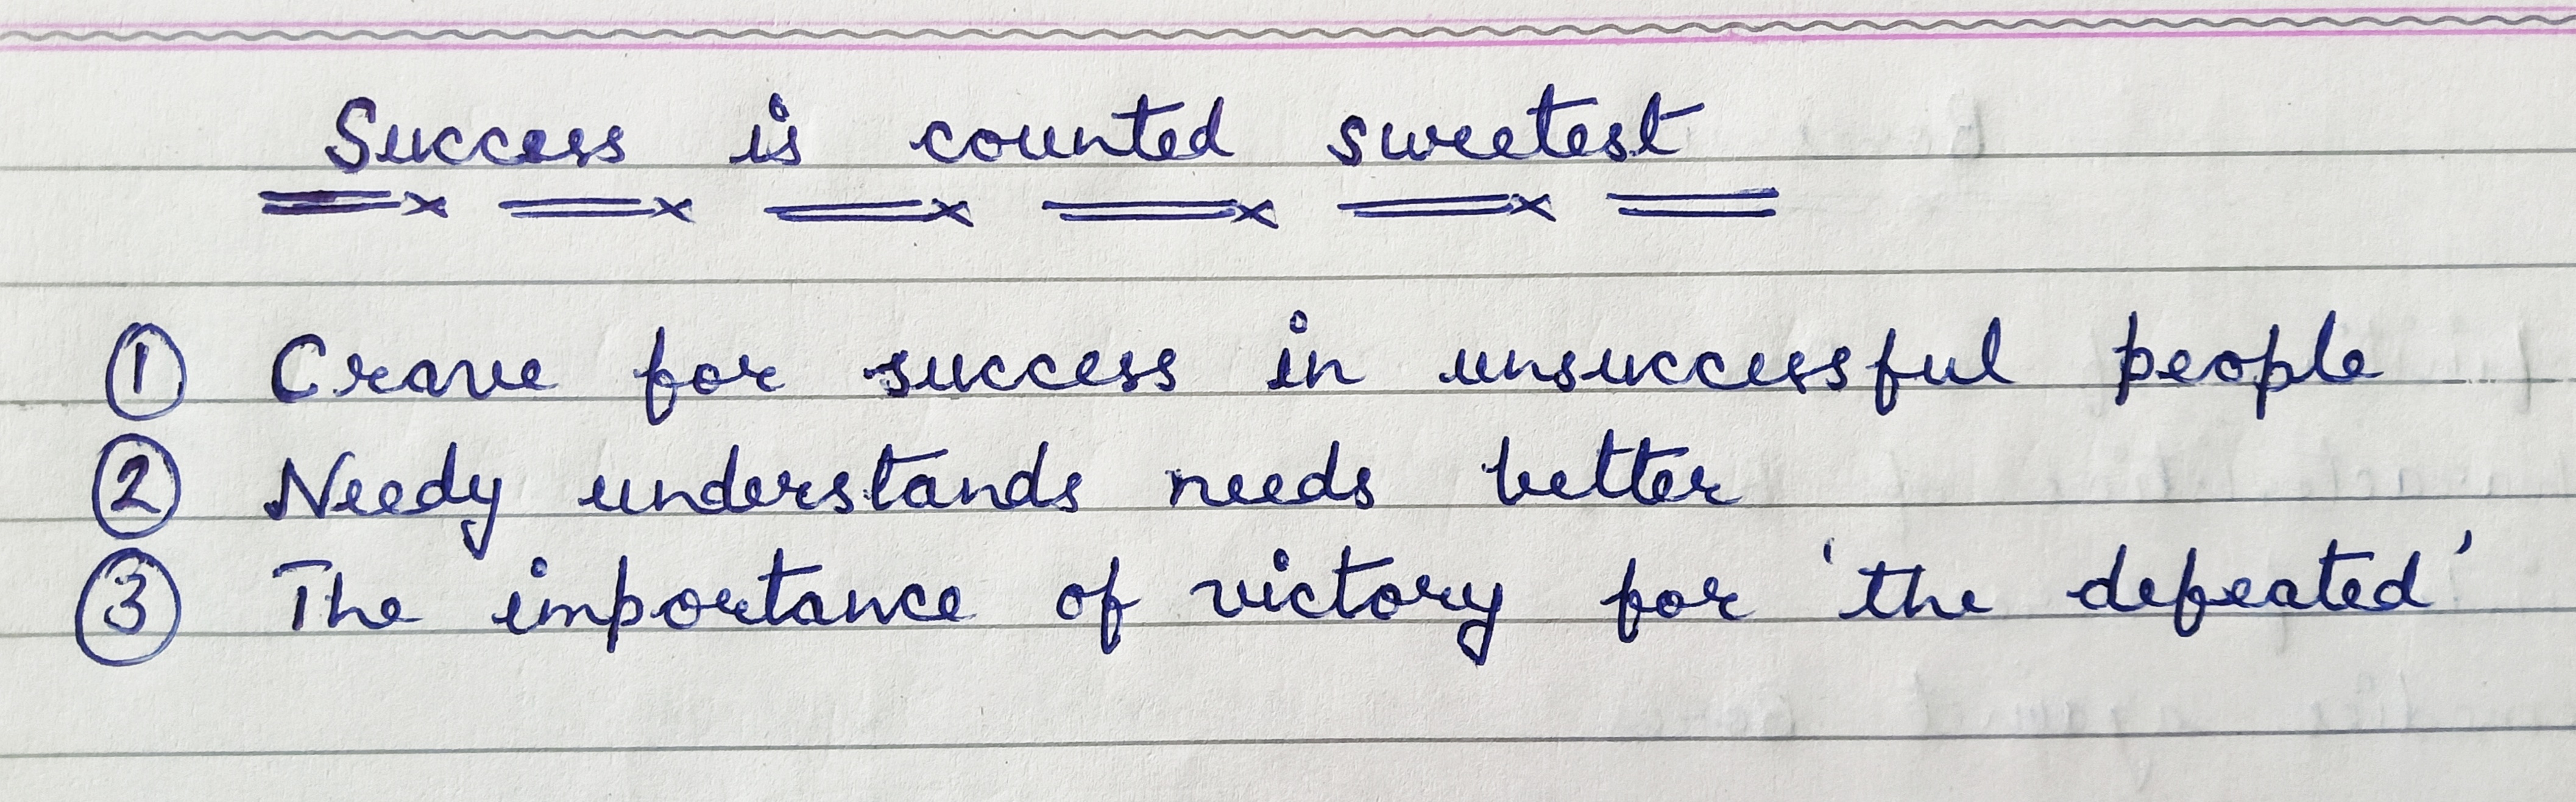 Success is counted sweetest
① Crave for success in unsuccessful people
② Needy understands needs better
③ The importance of victory for 'the defeated'